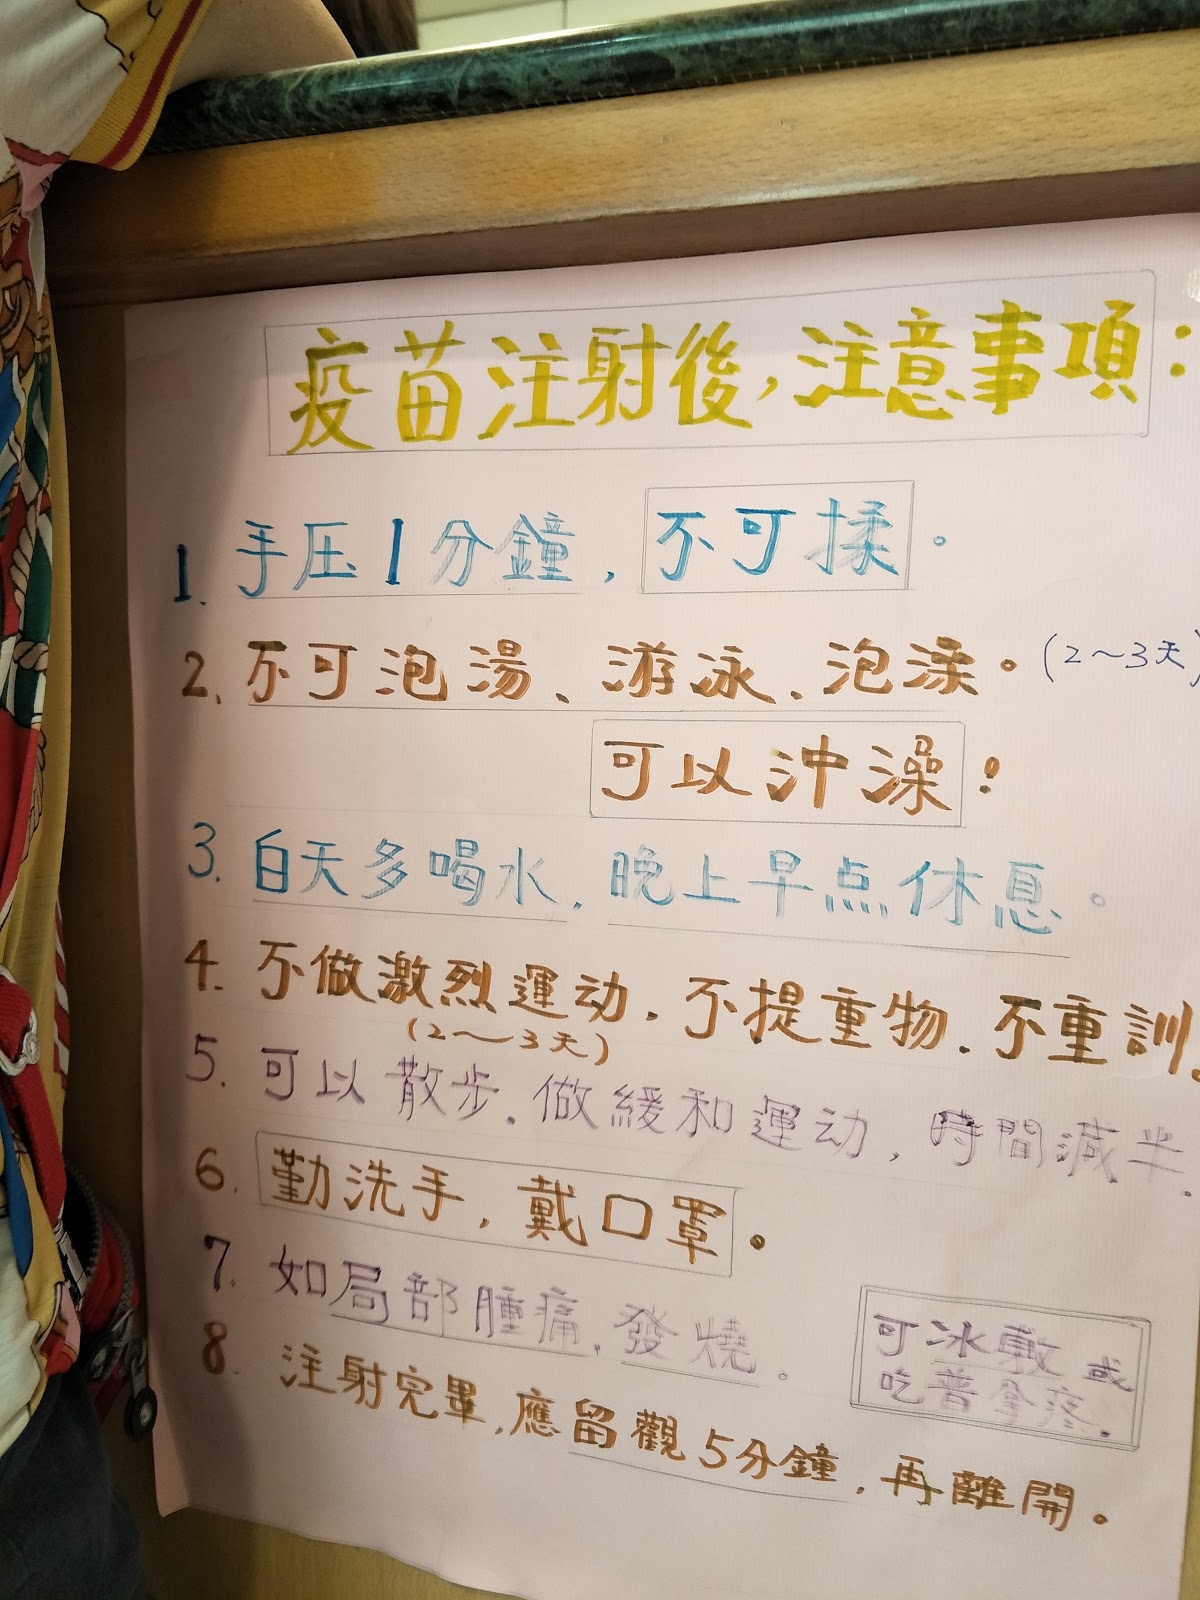 疫苗注射後,注意事項:
1. 手压1分鐘,不可揉。
2. 不可泡湯、游泳、泡澡。(2~3天)
可以沖澡!
3. 白天多喝水,晚上早点休息。
4. 不做激烈運动.不提重物.不重訓。
(2~3天)
5. 可以散步.做緩和運动,時間減半.
6. 勤洗手,戴口罩。
7. 如局部腫痛,發燒。
可冰敷或
吃普拿疼.
8. 注射完畢,應留觀5分鐘,再離開。